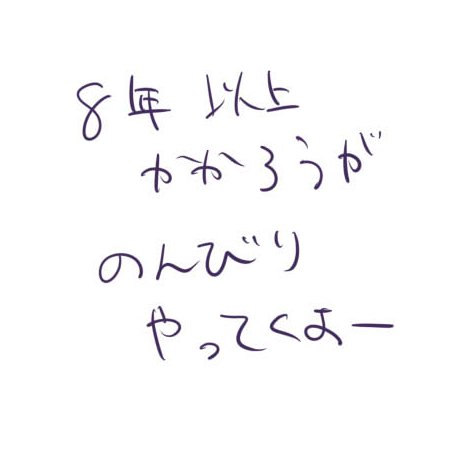 8年以上
かかろうが
のんびり
やってくよー